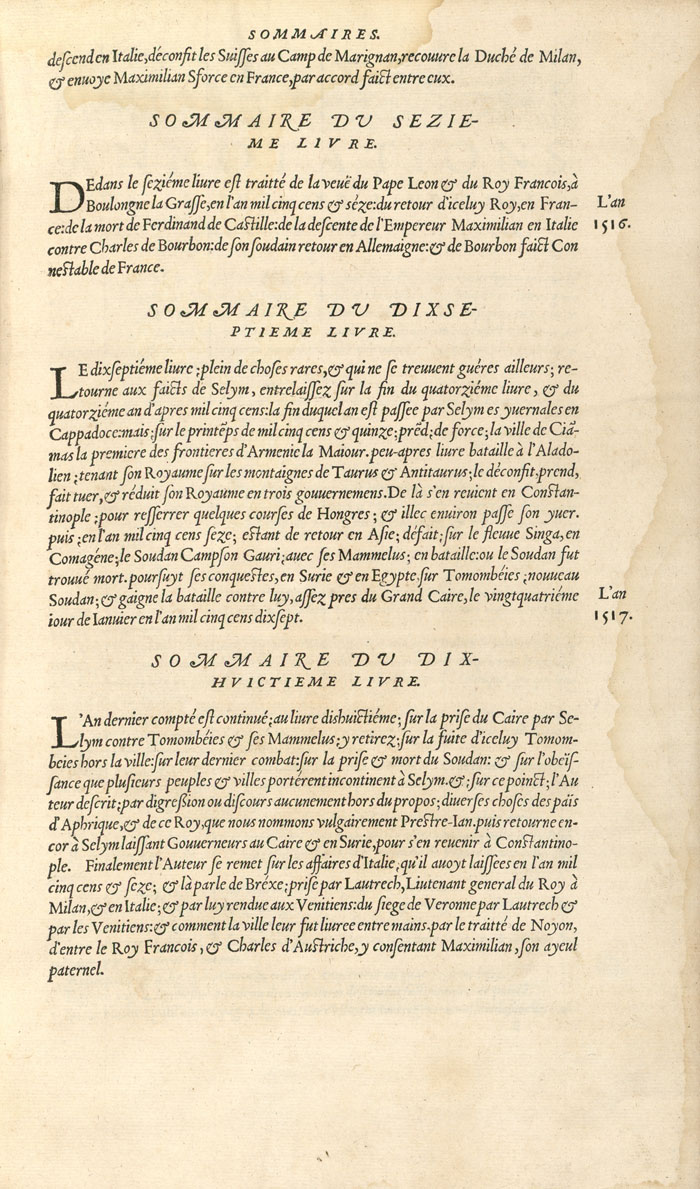 SOMMAIRES.
descend en Italie, déconfit les Suisses au Camp de Marignan, recouure la Duché de Milan,
& enuoye Maximilian Sforce en France, par accord faict entre eux.
SOMMAIRE DU SEZIE-
ME LIVRE.
DEdans le seziéme liure est traitté de la veuë du Pape Leon & du Roy Francois, à
Boulongne la Grasse, en l'an mil cinq cens & séze: du retour d'iceluy Roy, en Fran-
ce: de la mort de Ferdinand de Castille: de la descente de l'Empereur Maximilian en Italie
contre Charles de Bourbon: de son soudain retour en Allemaigne: & de Bourbon faict Con
nestable de France.
L'an
1516.
SOMMAIRE DU DIXSE-
PTIEME LIVRE.
LE dixseptiéme liure ; plein de choses rares, & qui ne se treuuent guéres ailleurs ; re-
tourne aux faicts de Selym, entrelaissez sur la fin du quatorziéme liure, & du
quatorziéme an d'apres mil cinq cens: la fin duquel an est passee par Selym es yuernales en
Cappadoce: mais ; sur le printẽps de mil cinq cens & quinze ; prẽd ; de force ; la ville de Ciã-
mas la premiere des frontieres d'Armenie la Maiour. peu-apres liure bataille à l'Alado-
lien ; tenant son Royaume sur les montaignes de Taurus & Antitaurus ; le déconfit. prend,
fait tuer, & réduit son Royaume en trois gouuernemens. De là s'en reuient en Constan-
tinople ; pour resserrer quelques courses de Hongres ; & illec enuiron passe son yuer.
puis ; en l'an mil cinq cens séze ; estant de retour en Asie ; défait ; sur le fleuue Singa, en
Comagéne ; le Soudan Campson Gauri ; auec ses Mammelus ; en bataille: ou le Soudan fut
trouué mort. poursuyt ses conquestes, en Surie & en Egypte. sur Tomombéies ; nouueau
Soudan ; & gaigne la bataille contre luy, assez pres du Grand Caire, le vingtquatriéme
iour de Ianuier en l'an mil cinq cens dixsept.
L'an
1517.
SOMMAIRE DU DIX-
HVICTIEME LIVRE.
L'An dernier compté est continué ; au liure dishuictiéme ; sur la prise du Caire par Se-
lym contre Tomombéies & ses Mammelus ; y retirez ; sur la fuite d'iceluy Tomom-
beies hors la ville: sur leur dernier combat: sur la prise & mort du Soudan: & sur l'obeïs-
sance que plusieurs peuples & villes portérent incontinent à Selym. & ; sur ce poinct ; l'Au
teur descrit ; par digression ou discours aucunement hors du propos ; diuerses choses des païs
d'Aphrique, & de ce Roy, que nous nommons vulgairement Prestre-Ian. puis retourne en-
cor à Selym laissant Gouuerneurs au Caire & en Surie, pour s'en reuenir à Constantino-
ple. Finalement l'Auteur se remet sur les affaires d'Italie, qu'il auoyt laissées en l'an mil
cinq cens & seze ; & là parle de Bréxe ; prise par Lautrech, Liutenant general du Roy à
Milan, & en Italie ; & par luy rendue aux Venitiens: du siege de Veronne par Lautrech &
par les Venitiens: & comment la ville leur fut liuree entre mains. par le traitté de Noyon,
d'entre le Roy Francois, & Charles d'Austriche, y consentant Maximilian, son ayeul
paternel.